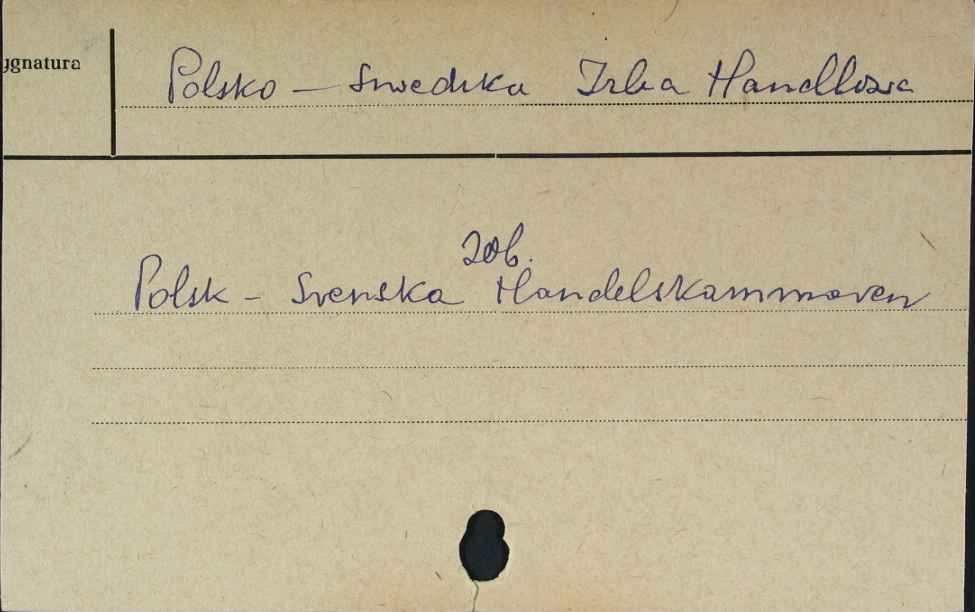 ygnatura
Polsko - Szwedzka Izba Handlowa
Zob.
Polsk - Svenska Handelskammaren